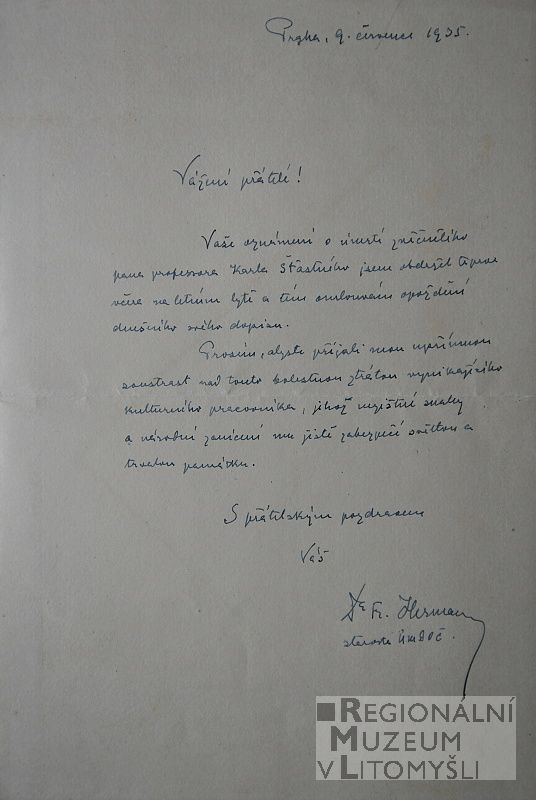 Praha, 9. července 1935.
Vážení přátelé!
Vaše oznámení o úmrtí zvěčnělého
pana professora Karla Šťastného jsem obdržel teprve
včera na letním bytě a tím omlouvám opoždění
dnešního svého dopisu.
Prosím, abyste přijali mou upřímnou
soustrast nad touto bolestnou ztrátou vynikajícího
kulturního pracovníka, jehož nezištné snahy
a národní zanícení mu jistě zabezpečí světlou a
trvalou památku.
S přátelským pozdravem
Váš
Dr Fr. Herman
starosta
REGIONÁLNÍ
MUZEUM
V LITOMYŠLI